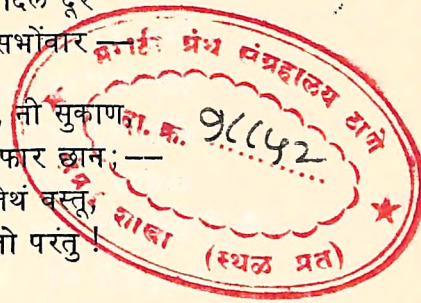 दूर
सभोंवार —
नी सुकाण,
फार छान; —
वस्तू,
परंतु !
ग्रंथ संग्रहालय ठाणे
क्र. १८८५२
शाखा (स्थळ प्रत)